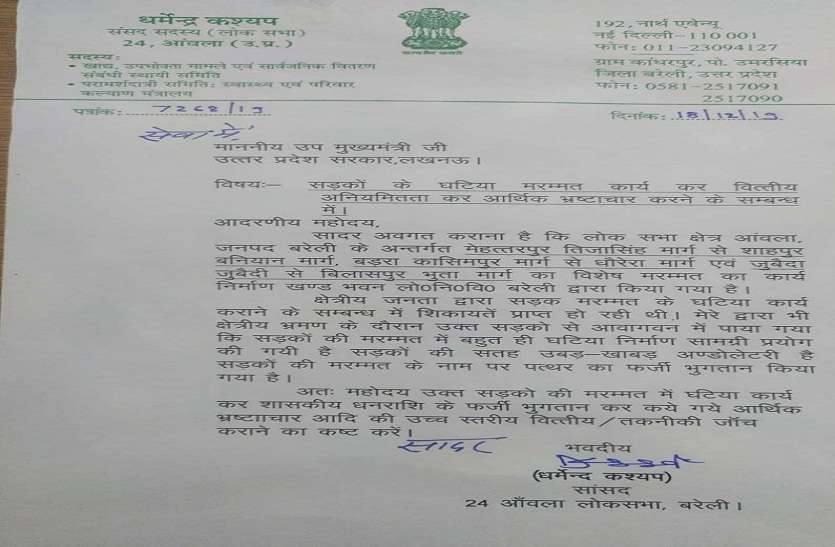 धर्मेन्द्र कश्यप
सांसद सदस्य (लोक सभा)
24, आंवला (उ.प्र.)
सदस्य:
• खाद्य, उपभोक्ता मामले एवं सार्वजनिक वितरण
संबंधी स्थायी समिति
• परामर्शदात्री समिति: स्वास्थ्य एवं परिवार
कल्याण मंत्रालय
सत्यमेव जयते
192, नार्थ एवेन्यू
नई दिल्ली-110 001
फोन: 011-23094127
ग्राम कांधरपुर, पो. उमरसिया
जिला बरेली, उत्तर प्रदेश
फोन: 0581-2517091
2517090
पत्रांक: 7268/19
दिनांक: 18/12/19
सेवा में,
माननीय उप मुख्यमंत्री जी
उत्तर प्रदेश सरकार,लखनऊ।
विषयः– सड़कों के घटिया मरम्मत कार्य कर वित्तीय
अनियमितता कर आर्थिक भ्रष्टाचार करने के सम्बन्ध
में।
आदरणीय महोदय,
सादर अवगत कराना है कि लोक सभा क्षेत्र आंवला,
जनपद बरेली के अन्तर्गत मेहत्तरपुर तिजासिंह मार्ग से शाहपुर
बनियान मार्ग, बड़रा कासिमपुर मार्ग से धौरेरा मार्ग एवं जुबैदा
जुबैदी से बिलासपुर भुता मार्ग का विशेष मरम्मत का कार्य
निर्माण खण्ड भवन लो०नि०वि० बरेली द्वारा किया गया है।
क्षेत्रीय जनता द्वारा सड़क मरम्मत के घटिया कार्य
कराने के सम्बन्ध में शिकायतें प्राप्त हो रही थी। मेरे द्वारा भी
क्षेत्रीय भ्रमण के दौरान उक्त सड़को से आवागवन में पाया गया
कि सड़कों की मरम्मत में बहुत ही घटिया निर्माण सामग्री प्रयोग
की गयी है सड़कों की सतह उबड़–खाबड़ अण्डोलेटरी है
सड़कों की मरम्मत के नाम पर पत्थर का फर्जी भुगतान किया
गया है।
अतः महोदय उक्त सड़को की मरम्मत में घटिया कार्य
कर शासकीय धनराशि के फर्जी भुगतान कर कये गये आर्थिक
भ्रष्टााचार आदि की उच्च स्तरीय वित्तीय/तकनीकी जॉंच
कराने का कष्ट करें।
सादर
भवदीय
(धर्मेन्द कश्यप)
सांसद
24 ऑंवला लोकसभा, बरेली।